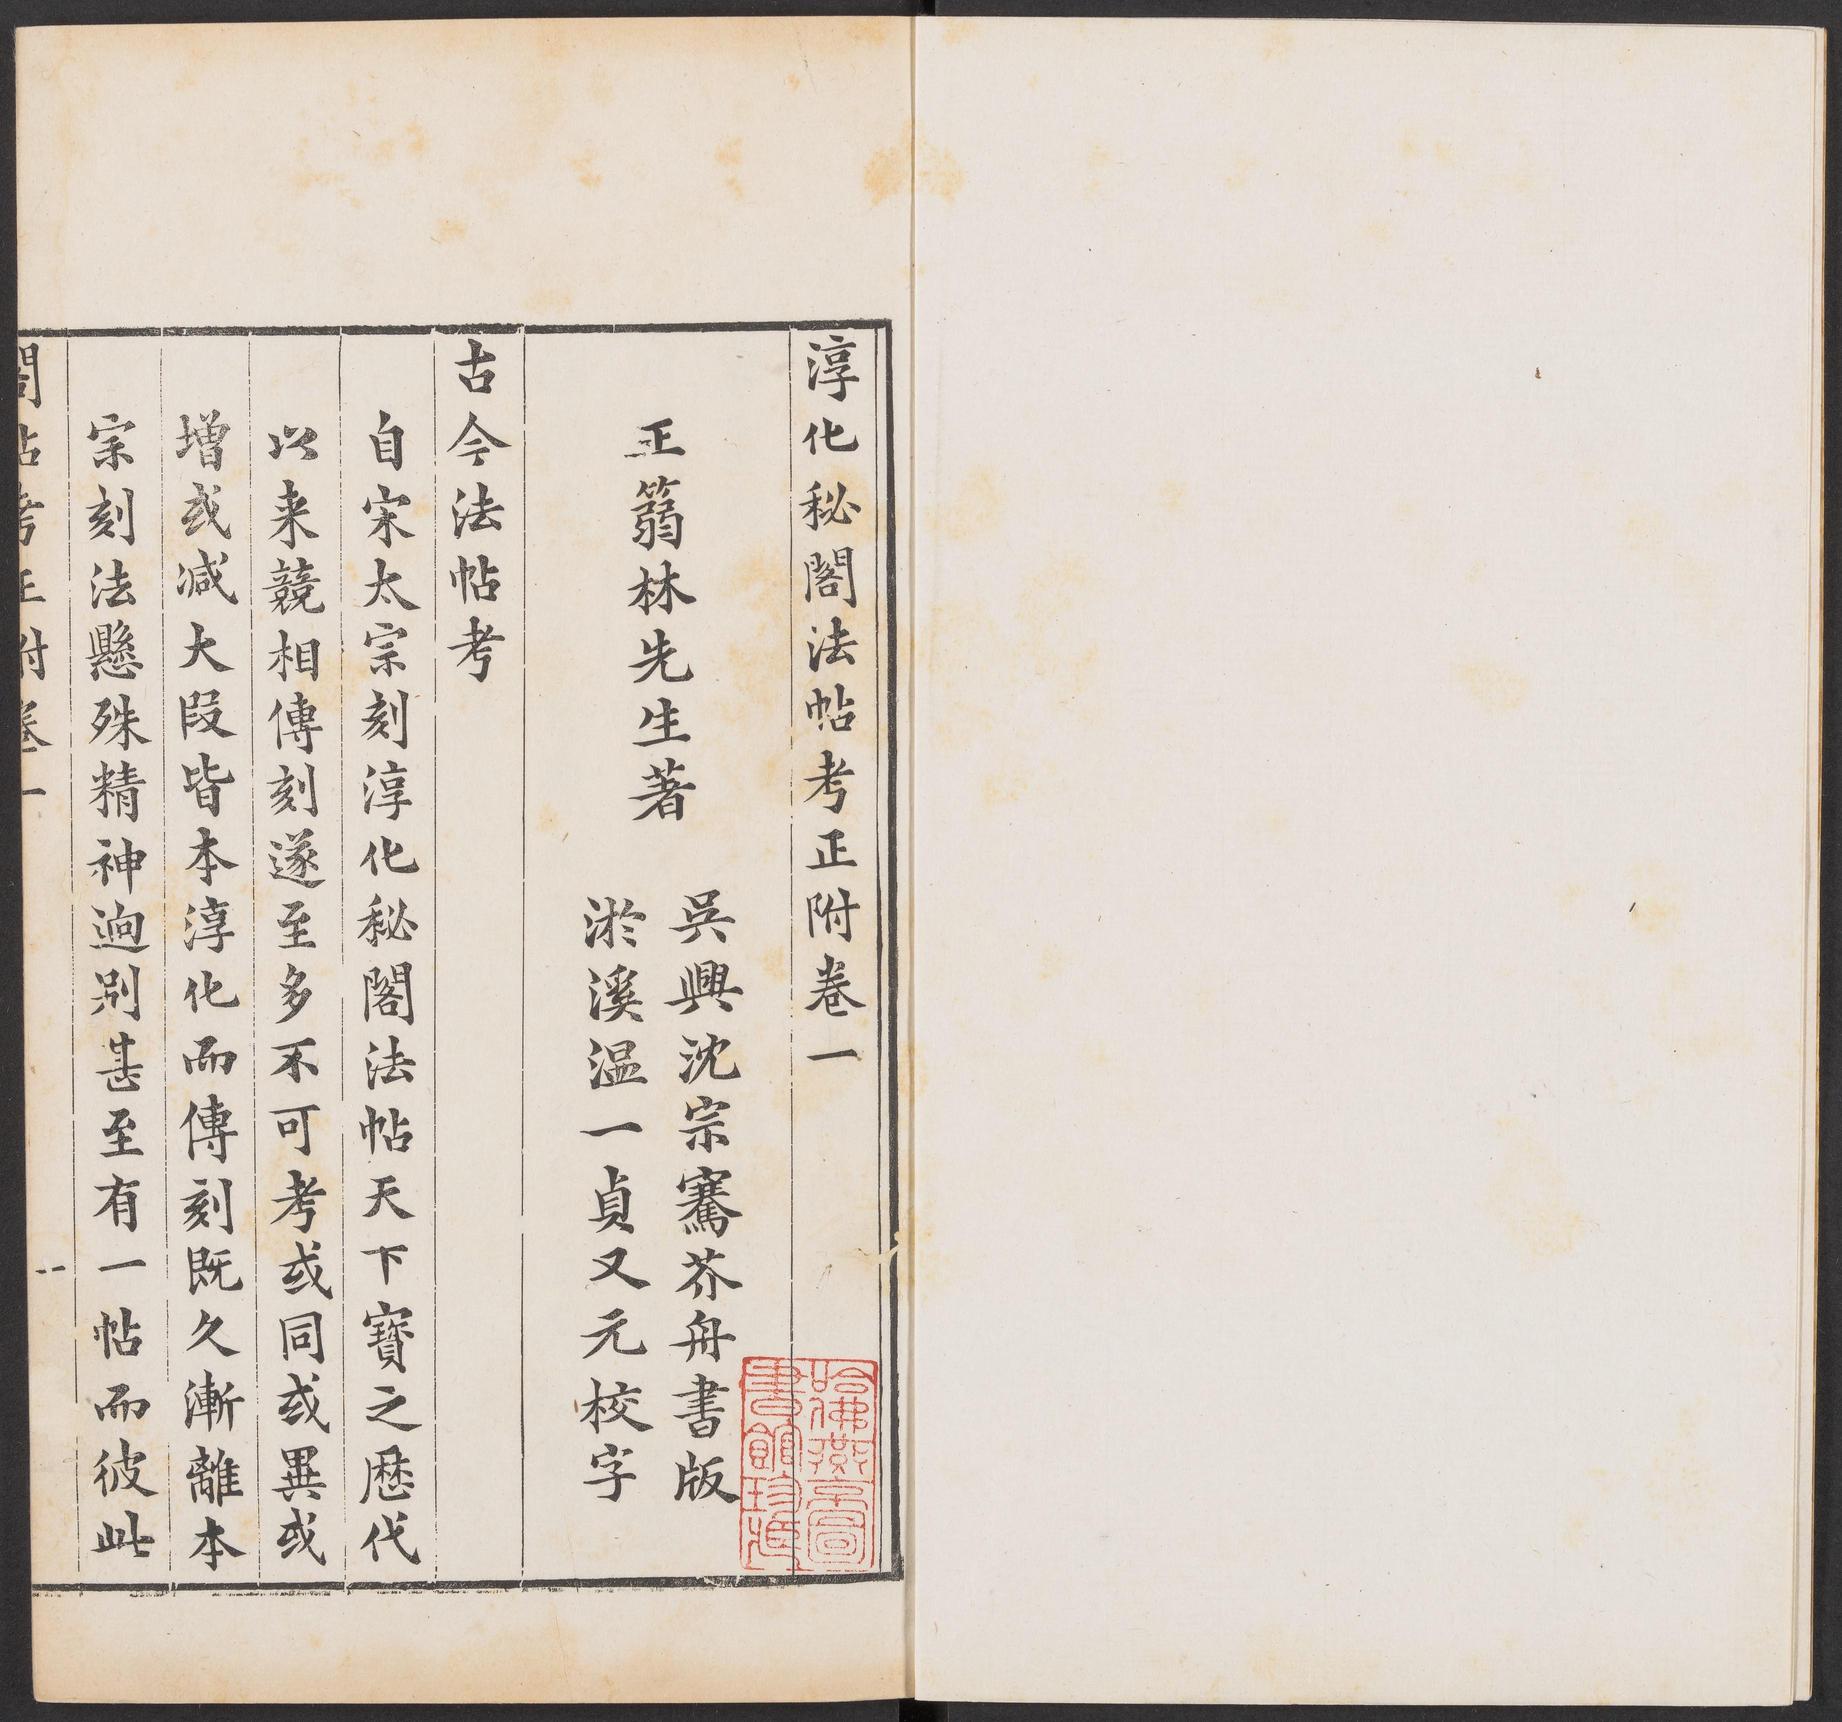 淳化秘閣法帖考正附卷一
王篛林先生著
吳興沈宗騫芥舟書版
淤溪温一貞又元校字
古今法帖考
自宋太宗刻淳化秘閣法帖天下寶之歷代
以来競相傳刻遂至多不可考或同或異或
增或減大段皆本淳化而傳刻既久漸離本
宗刻法懸殊精神逈别甚至有一帖而彼此
閣帖考正附卷一
哈佛燕京圖
書館珍藏